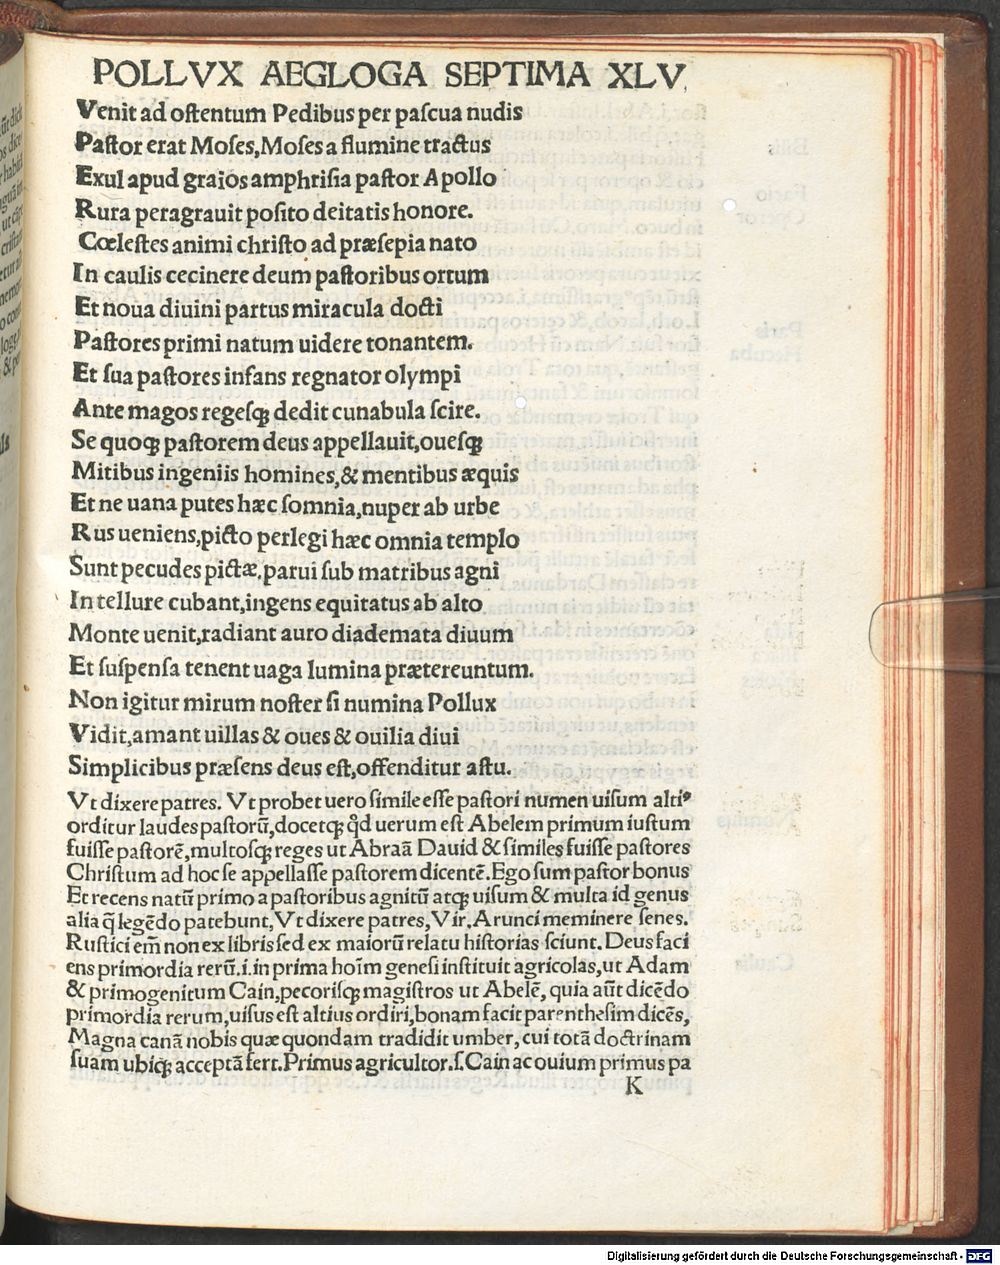 POLLVX AEGLOGA SEPTIMA XLV
Venit ad oſtentum Pedibus per paſcua nudis
Paſtor erat Moſes, Moſes a flumine tractus
Exul apud graios amphriſia paſtor Apollo
Rura peragrauit poſito deitatis honore.
Cœleſtes animi chriſto ad præſepia nato
In caulis cecinere deum paſtoribus ortum
Et noua diuini partus miracula docti
Paſtores primi natum uidere tonantem.
Et ſua paſtores infans regnator olympi
Ante magos regeſqꝫ dedit cunabula ſcire.
Se quoqꝫ paſtorem deus appellauit, oueſqꝫ
Mitibus ingeniis homines, & mentibus æquis
Et ne uana putes hæc ſomnia, nuper ab urbe
Rus ueniens, picto perlegi hæc omnia templo
Sunt pecudes pictæ. parui ſub matribus agni
In tellure cubant, ingens equitatus ab alto
Monte uenit, radiant auro diademata diuum
Et ſuſpenſa tenent uaga lumina prætereuntum.
Non igitur mirum noſter ſi numina Pollux
Vidit, amant uillas & oues & ouilia diui
Simplicibus præſens deus eſt, offenditur aſtu.
Vt dixere patres. Vt probet uero ſimile eſſe paſtori numen uiſum altiꝰ
orditur laudes paſtorū, docetqꝫ qd̄ uerum eſt Abelem primum iuſtum
fuiſſe paſtorē, multoſqꝫ reges ut Abraā Dauid & ſimiles fuiſſe paſtores
Chriſtum ad hoc ſe appellaſſe paſtorem dicentē. Ego ſum paſtor bonus
Et recens natū primo a paſtoribus agnitū atqꝫ uiſum & multa id genus
alia q̄ legēdo patebunt, Vt dixere patres, Vir. Arunci meminere ſenes.
Ruſtici em̄ non ex libris ſed ex maiorū relatu hiſtorias ſciunt. Deus faci
ens primordia rerū .i. in prima hoīm geneſi inſtituit agricolas, ut Adam
& primogenitum Cain, pecoriſqꝫ magiſtros ut Abelē, quia aūt dicēdo
primordia rerum, uiſus eſt altius ordiri, bonam facit parentheſim dicēs,
Magna canā nobis quæ quondam tradidit umber, cui totā doctrinam
ſuam ubiqꝫ acceptā fert. Primus agricultor .ſ. Cain ac ouium primus pa
K
Digitalisierung gefördert durch die Deutsche Forschungsgemeinschaft - DFG